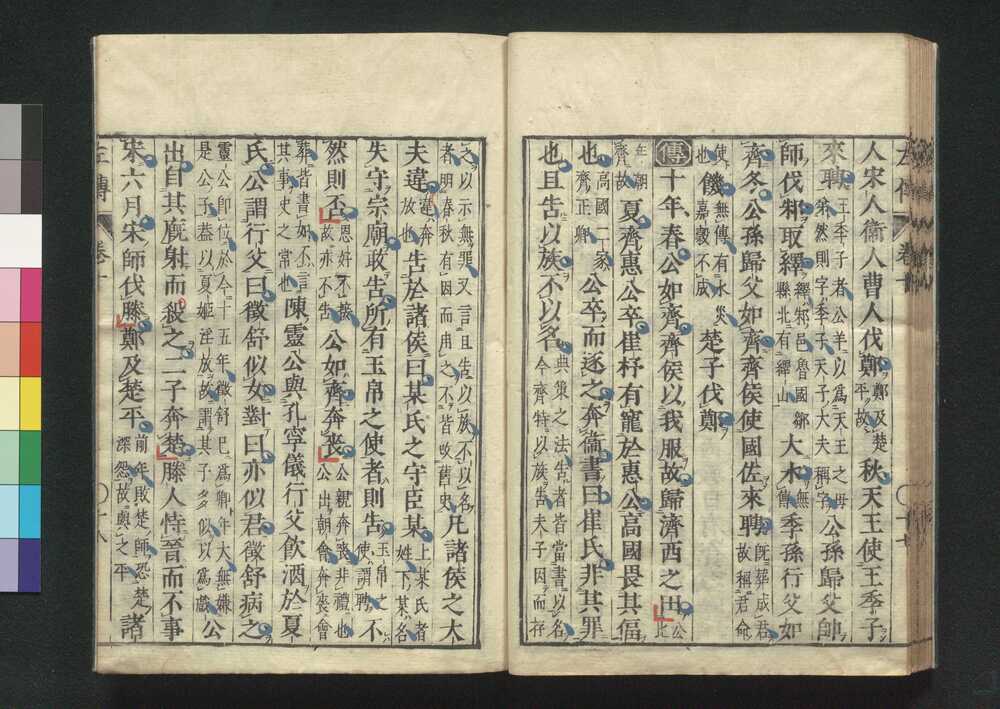 人宋人衞人曹人伐鄭鄭及楚平故秋天王使王季子
來聘王季子者公羊以爲天王之母弟然則字季子天子大夫稱字公孫歸父帥
師伐邾取繹繹邾邑魯國鄒縣北有繹山大水無傳季孫行父如
齊冬公孫歸父如齊齊侯使國佐來聘既葬成君故稱君命
使也饑無傳有水災嘉穀不成楚子伐鄭
傳十年春公如齊齊侯以我服故歸濟西之田公比
年朝齊故夏齊惠公卒崔杼有寵於惠公高國畏其偪
也高國二家齊正卿公卒而逐之奔衞書曰崔氏非其罪
也且告以族不以名典策之法告者皆當書以名今齊特以族告夫子因而存
之以示無罪又言且告以族不以名者明春秋有因而用之不皆改舊史凡諸侯之大
夫違違奔放也告於諸侯曰某氏之守臣某上某氏者姓下某名
失守宗廟敢告所有玉帛之使者則告玉帛之使謂聘不
然則否恩好不接故亦不告公如齊奔喪公親奔喪非禮也公出朝會奔喪會
葬皆書如不言其事史之常也陳靈公與孔寧儀行父飲酒於夏
氏公謂行父曰徵舒似女對曰亦似君徵舒病之
靈公卽位於今十五年徵舒已爲卿年大無嫌是公子蓋以夏姬淫放故謂其子多似以爲戲公
出自其廐射而殺之二子奔楚滕人恃晉而不事
宋六月宋師伐滕鄭及楚平前年敗楚師恐楚深怨故與之平諸
左傳 卷十 十八